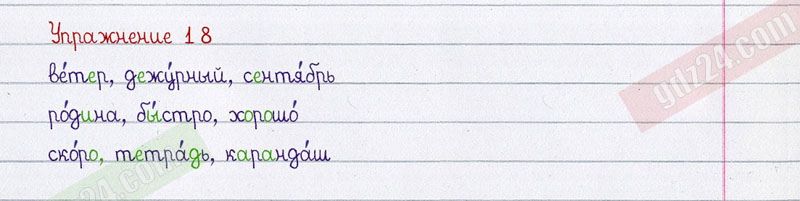 Упражнение 18
ве́тер, дежу́рный, сентя́брь
ро́дина, бы́стро, хорошо́
ско́ро, тетра́дь, каранда́ш
gdz24.com
gdz24.com